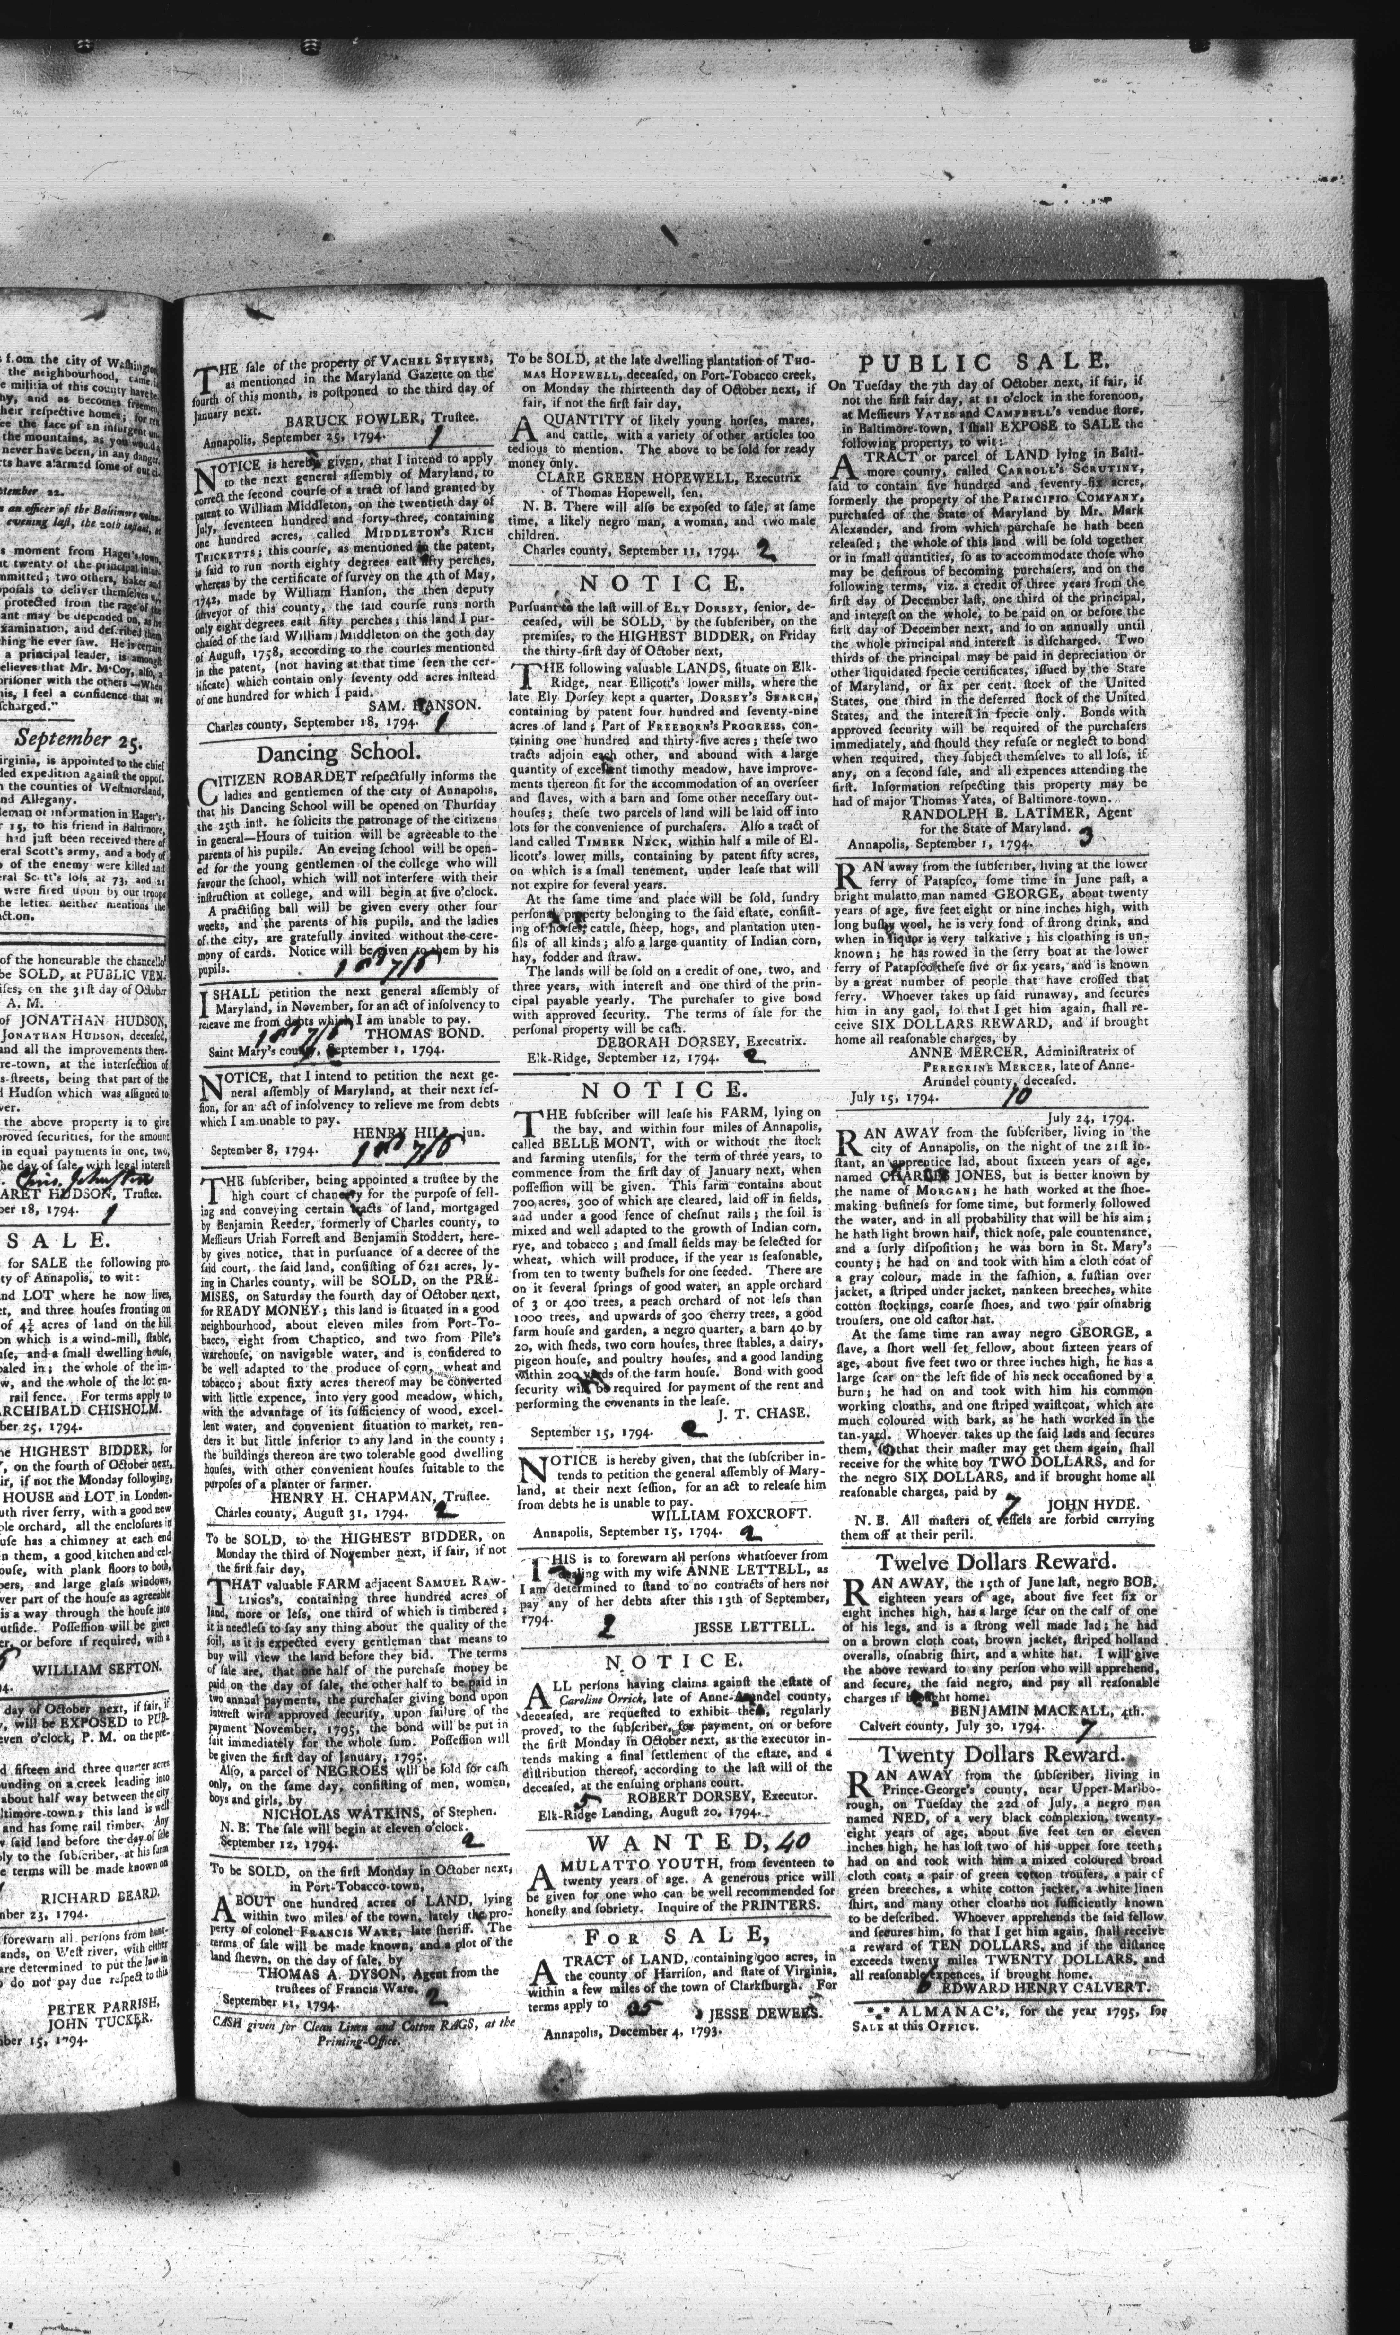 s f.om the city of Washington,
the neighbourhood, came in
e militia of this county have be
hy, and as becomes freemen,
heir respective homes; for ten
ee the face of an insurgent un-
the mountains, as you would
never have been, in any danger
rts have alarmed some of our ci-
ptember 22.
s an officer of the Baltimore volun-
evening last, the 20th instant, at
s moment from Hager's-town,
nt twenty of the principal insur-
mmitted; two others, Baker and
oposals to deliver themselves up,
protected from the rage of the
ant may be depended on, as he
xamination, and described them
hing he ever saw. He is certain
a principal leader, is amongst
elieves that Mr. McCoy, also, a
prisoner with the others—When
his, I feel a confidence that we
scharged."
September 25.
irginia, is appointed to the chief
ded expedition against the oppos.
n the counties of Westmoreland,
nd Allegany.
leman of information in Hager's-
r 15, to his friend in Baltimore,
h.d just been received there of
eral Scott's army, and a body of
of the enemy were killed and
ral Sc.tt's loss at 73, and 21
were fired upon by our troops
he letter neither mentions the
ct.on.
of the honourable the chancellor
be SOLD, at PUBLIC VEN-
ises, on the 31st day of October
A. M.
of JONATHAN HUDSON,
JONATHAN HUDSON, deceased,
and all the improvements there-
re-town, at the intersection of
s-streets, being that part of the
d Hudson which was assigned to
ver.
the above property is to give
proved securities, for the amount
in equal payments in one, two,
he day of sale, with legal interest
ARET HUDSON, Trustee.
ber 18, 1794. 1
SALE.
for SALE the following pro-
ty of Annapolis, to wit:
nd LOT where he now lives,
et, and three houses fronting on
of 4¼ acres of land on the hill
on which is a wind-mill, stable,
use, and a small dwelling house,
paled in; the whole of the im-
w, and the whole of the lot en-
rail fence. For terms apply to
ARCHIBALD CHISHOLM.
ber 25, 1794.
he HIGHEST BIDDER, for
Y, on the fourth of October next,
air, if not the Monday following,
HOUSE and LOT in London-
uth river ferry, with a good new
ple orchard, all the enclosures in
use has a chimney at each end
n them, a good kitchen and cel-
ouse, with plank floors to both,
pers, and large glass windows,
ver part of the house as agreeable
is a way through the house into
utside. Possession will be given
er, or before if required, with a
WILLIAM SEFTON.
94.
day of October next, if fair, if
, will be EXPOSED to PUB-
even o'clock, P. M. on the pre-
d fifteen and three quarter acres
unding on a creek leading into
about half way between the city
ltimore-town; this land is well
and has some rail timber. Any
w said land before the day of sale
ply to the subscriber, at his farm
e terms will be made known on
RICHARD BEARD.
mber 23, 1794.
forewarn all persons from hunt-
ands, on West river, with either
are determined to put the law in
do not pay due respect to this
PETER PARRISH,
JOHN TUCKER.
ber 15, 1794.
THE sale of the property of VACHEL STEVENS,
as mentioned in the Maryland Gazette on the
fourth of this month, is postponed to the third day of
January next.
BARUCK FOWLER, Trustee.
Annapolis, September 25, 1794. 1
NOTICE is hereby given, that I intend to apply
to the next general assembly of Maryland, to
correct the second course of a tract of land granted by
patent to William Middleton, on the twentieth day of
July, seventeen hundred and forty-three, containing
one hundred acres, called MIDDLETON'S RICH
TRICKETTS; this course, as mentioned in the patent,
is said to run north eighty degrees east fifty perches,
whereas by the certificate of survey on the 4th of May,
1742, made by William Hanson, the then deputy
surveyor of this county, the said course runs north
only eight degrees east fifty perches; this land I pur-
chased of the said William Middleton on the 30th day
of August, 1758, according to the courses mentioned
in the patent, (not having at that time seen the cer-
tificate) which contain only seventy odd acres instead
of one hundred for which I paid.
SAM. HANSON.
Charles county, September 18, 1794. 1
Dancing School.
CITIZEN ROBARDET respectfully informs the
ladies and gentlemen of the city of Annapolis,
that his Dancing School will be opened on Thursday
the 25th inst. he solicits the patronage of the citizens
in general—Hours of tuition will be agreeable to the
parents of his pupils. An eveing school will be open-
ed for the young gentlemen of the college who will
favour the school, which will not interfere with their
instruction at college, and will begin at five o'clock.
A practising ball will be given every other four
weeks, and the parents of his pupils, and the ladies
of the city, are gratefully invited without the cere-
mony of cards. Notice will be given to them by his
pupils.
I SHALL petition the next general assembly of
Maryland, in November, for an act of insolvency to
releave me from debts which I am unable to pay.
THOMAS BOND.
Saint Mary's county, September 1, 1794.
NOTICE, that I intend to petition the next ge-
neral assembly of Maryland, at their next ses-
sion, for an act of insolvency to relieve me from debts
which I am unable to pay.
HENRY HILL, jun.
September 8, 1794.
THE subscriber, being appointed a trustee by the
high court of chancery for the purpose of sell-
ing and conveying certain tracts of land, mortgaged
by Benjamin Reeder, formerly of Charles county, to
Messieurs Uriah Forrest and Benjamin Stoddert, here-
by gives notice, that in pursuance of a decree of the
said court, the said land, consisting of 621 acres, ly-
ing in Charles county, will be SOLD, on the PRE-
MISES, on Saturday the fourth day of October next,
for READY MONEY; this land is situated in a good
neighbourhood, about eleven miles from Port-To-
bacco, eight from Chaptico, and two from Pile's
warehouse, on navigable water, and is considered to
be well adapted to the produce of corn, wheat and
tobacco; about sixty acres thereof may be converted
with little expence, into very good meadow, which,
with the advantage of its sufficiency of wood, excel-
lent water, and convenient situation to market, ren-
ders it but little inferior to any land in the county;
the buildings thereon are two tolerable good dwelling
houses, with other convenient houses suitable to the
purposes of a planter or farmer.
HENRY H. CHAPMAN, Trustee.
Charles county, August 31, 1794. 2
To be SOLD, to the HIGHEST BIDDER, on
Monday the third of November next, if fair, if not
the first fair day,
THAT valuable FARM adjacent SAMUEL RAW-
LINGS'S, containing three hundred acres of
land, more or less, one third of which is timbered;
it is needless to say any thing about the quality of the
soil, as it is expected every gentleman that means to
buy will view the land before they bid. The terms
of sale are, that one half of the purchase money be
paid on the day of sale, the other half to be paid in
two annual payments, the purchaser giving bond upon
interest with approved security, upon failure of the
payment November, 1795, the bond will be put in
suit immediately for the whole sum. Possession will
be given the first day of January, 1795.
Also, a parcel of NEGROES will be sold for cash
only, on the same day, consisting of men, women,
boys and girls, by
NICHOLAS WATKINS, of Stephen.
N. B. The sale will begin at eleven o'clock.
September 12, 1794. 2
To be SOLD, on the first Monday in October next,
in Port-Tobacco-town,
ABOUT one hundred acres of LAND, lying
within two miles of the town, lately the pro-
perty of colonel FRANCIS WARE, late sheriff. The
terms of sale will be made known, and a plot of the
land shewn, on the day of sale, by
THOMAS A. DYSON, Agent from the
trustees of Francis Ware.
September 11, 1794. 2
CASH given for Clean Linen and Cotton RAGS, at the
Printing-Office.
To be SOLD, at the late dwelling plantation of THO-
MAS HOPEWELL, deceased, on Port-Tobacco creek,
on Monday the thirteenth day of October next, if
fair, if not the first fair day,
A QUANTITY of likely young horses, mares,
and cattle, with a variety of other articles too
tedious to mention. The above to be sold for ready
money only.
CLARE GREEN HOPEWELL, Executrix
of Thomas Hopewell, sen.
N. B. There will also be exposed to sale, at same
time, a likely negro man, a woman, and two male
children.
Charles county, September 11, 1794. 2
NOTICE.
Pursuant to the last will of ELY DORSEY, senior, de-
ceased, will be SOLD, by the subscriber, on the
premises, to the HIGHEST BIDDER, on Friday
the thirty-first day of October next,
THE following valuable LANDS, situate on Elk-
Ridge, near Ellicott's lower mills, where the
late Ely Dorsey kept a quarter, DORSEY'S SEARCH,
containing by patent four hundred and seventy-nine
acres of land; Part of FREEBORN'S PROGRESS, con-
taining one hundred and thirty-five acres; these two
tracts adjoin each other, and abound with a large
quantity of excellent timothy meadow, have improve-
ments thereon fit for the accommodation of an overseer
and slaves, with a barn and some other necessary out-
houses; these two parcels of land will be laid off into
lots for the convenience of purchasers. Also a tract of
land called TIMBER NECK, within half a mile of El-
licott's lower mills, containing by patent fifty acres,
on which is a small tenement, under lease that will
not expire for several years.
At the same time and place will be sold, sundry
personal property belonging to the said estate, consist-
ing of horses, cattle, sheep, hogs, and plantation uten-
sils of all kinds; also a large quantity of Indian corn,
hay, fodder and straw.
The lands will be sold on a credit of one, two, and
three years, with interest and one third of the prin-
cipal payable yearly. The purchaser to give bond
with approved security. The terms of sale for the
personal property will be cash.
DEBORAH DORSEY, Executrix.
Elk-Ridge, September 12, 1794. 2
NOTICE.
THE subscriber will lease his FARM, lying on
the bay, and within four miles of Annapolis,
called BELLE MONT, with or without the stock
and farming utensils, for the term of three years, to
commence from the first day of January next, when
possession will be given. This farm contains about
700 acres, 300 of which are cleared, laid off in fields,
and under a good fence of chesnut rails; the soil is
mixed and well adapted to the growth of Indian corn,
rye, and tobacco; and small fields may be selected for
wheat, which will produce, if the year is seasonable,
from ten to twenty bushels for one seeded. There are
on it several springs of good water, an apple orchard
of 3 or 400 trees, a peach orchard of not less than
1000 trees, and upwards of 300 cherry trees, a good
farm house and garden, a negro quarter, a barn 40 by
20, with sheds, two corn houses, three stables, a dairy,
pigeon house, and poultry houses, and a good landing
within 200 yards of the farm house. Bond with good
security will be required for payment of the rent and
performing the covenants in the lease.
J. T. CHASE.
September 15, 1794. 2
NOTICE is hereby given, that the subscriber in-
tends to petition the general assembly of Mary-
land, at their next session, for an act to release him
from debts he is unable to pay.
WILLIAM FOXCROFT.
Annapolis, September 15, 1794. 2
THIS is to forewarn all persons whatsoever from
dealing with my wife ANNE LETTELL, as
I am determined to stand to no contracts of hers nor
pay any of her debts after this 13th of September,
1794.
2 JESSE LETTELL.
NOTICE.
ALL persons having claims against the estate of
Caroline Orrick, late of Anne-Arundel county,
deceased, are requested to exhibit them, regularly
proved, to the subscriber, for payment, on or before
the first Monday in October next, as the executor in-
tends making a final settlement of the estate, and a
distribution thereof, according to the last will of the
deceased, at the ensuing orphans court.
5 ROBERT DORSEY, Executor.
Elk-Ridge Landing, August 20, 1794.
WANTED, 40
A MULATTO YOUTH, from seventeen to
twenty years of age. A generous price will
be given for one who can be well recommended for
honesty and sobriety. Inquire of the PRINTERS.
FOR SALE,
A TRACT of LAND, containing 900 acres, in
the county of Harrison, and state of Virginia,
within a few miles of the town of Clarksburgh. For
terms apply to
JESSE DEWEES.
Annapolis, December 4, 1793.
PUBLIC SALE.
On Tuesday the 7th day of October next, if fair, if
not the first fair day, at 11 o'clock in the forenoon,
at Messieurs YATES and CAMPBELL'S vendue store,
in Baltimore-town, I shall EXPOSE to SALE the
following property, to wit:
A TRACT or parcel of LAND lying in Balti-
more county, called CARROLL'S SCRUTINY,
said to contain five hundred and seventy-six acres,
formerly the property of the PRINCIPIO COMPANY,
purchased of the State of Maryland by Mr. Mark
Alexander, and from which purchase he hath been
released; the whole of this land will be sold together
or in small quantities, so as to accommodate those who
may be desirous of becoming purchasers, and on the
following terms, viz. a credit of three years from the
first day of December last, one third of the principal,
and interest on the whole, to be paid on or before the
first day of December next, and so on annually until
the whole principal and interest is discharged. Two
thirds of the principal may be paid in depreciation or
other liquidated specie certificates, issued by the State
of Maryland, or six per cent. stock of the United
States, one third in the deferred stock of the United
States, and the interest in specie only. Bonds with
approved security will be required of the purchasers
immediately, and should they refuse or neglect to bond
when required, they subject themselves to all loss, if
any, on a second sale, and all expences attending the
first. Information respecting this property may be
had of major Thomas Yates, of Baltimore-town.
RANDOLPH B. LATIMER, Agent
for the State of Maryland.
Annapolis, September 1, 1794. 3
RAN away from the subscriber, living at the lower
ferry of Patapsco, some time in June past, a
bright mulatto man named GEORGE, about twenty
years of age, five feet eight or nine inches high, with
long bushy wool, he is very fond of strong drink, and
when in liquor is very talkative; his cloathing is un-
known; he has rowed in the ferry boat at the lower
ferry of Patapsco these five or six years, and is known
by a great number of people that have crossed that
ferry. Whoever takes up said runaway, and secures
him in any gaol, so that I get him again, shall re-
ceive SIX DOLLARS REWARD, and if brought
home all reasonable charges, by
ANNE MERCER, Administratrix of
PEREGRINE MERCER, late of Anne-
Arundel county, deceased.
July 15, 1794. 10
July 24, 1794.
RAN AWAY from the subscriber, living in the
city of Annapolis, on the night of the 21st in-
stant, an apprentice lad, about sixteen years of age,
named CHARLES JONES, but is better known by
the name of MORGAN; he hath worked at the shoe-
making business for some time, but formerly followed
the water, and in all probability that will be his aim;
he hath light brown hair, thick nose, pale countenance,
and a surly disposition; he was born in St. Mary's
county; he had on and took with him a cloth coat of
a gray colour, made in the fashion, a fustian over
jacket, a striped under jacket, nankeen breeches, white
cotton stockings, coarse shoes, and two pair osnabrig
trousers, one old castor hat.
At the same time ran away negro GEORGE, a
slave, a short well set fellow, about sixteen years of
age, about five feet two or three inches high, he has a
large scar on the left side of his neck occasioned by a
burn; he had on and took with him his common
working cloaths, and one striped waistcoat, which are
much coloured with bark, as he hath worked in the
tan-yard. Whoever takes up the said lads and secures
them, so that their master may get them again, shall
receive for the white boy TWO DOLLARS, and for
the negro SIX DOLLARS, and if brought home all
reasonable charges, paid by
7 JOHN HYDE.
N. B. All masters of vessels are forbid carrying
them off at their peril.
Twelve Dollars Reward.
RAN AWAY, the 15th of June last, negro BOB,
eighteen years of age, about five feet six or
eight inches high, has a large scar on the calf of one
of his legs, and is a strong well made lad; he had
on a brown cloth coat, brown jacket, striped holland
overalls, osnabrig shirt, and a white hat. I will give
the above reward to any person who will apprehend,
and secure, the said negro, and pay all reasonable
charges if brought home.
BENJAMIN MACKALL, 4th.
Calvert county, July 30, 1794. 7
Twenty Dollars Reward.
RAN AWAY from the subscriber, living in
Prince-George's county, near Upper-Marlbo-
rough, on Tuesday the 22d of July, a negro man
named NED, of a very black complexion, twenty-
eight years of age, about five feet ten or eleven
inches high, he has lost two of his upper fore teeth;
had on and took with him a mixed coloured broad
cloth coat, a pair of green cotton trousers, a pair of
green breeches, a white cotton jacket, a white linen
shirt, and many other cloaths not sufficiently known
to be described. Whoever apprehends the said fellow
and secures him, so that I get him again, shall receive
a reward of TEN DOLLARS, and if the distance
exceeds twenty miles TWENTY DOLLARS, and
all reasonable expences, if brought home.
EDWARD HENRY CALVERT.
*⁎* ALMANAC's, for the year 1795, for
SALE at this OFFICE.